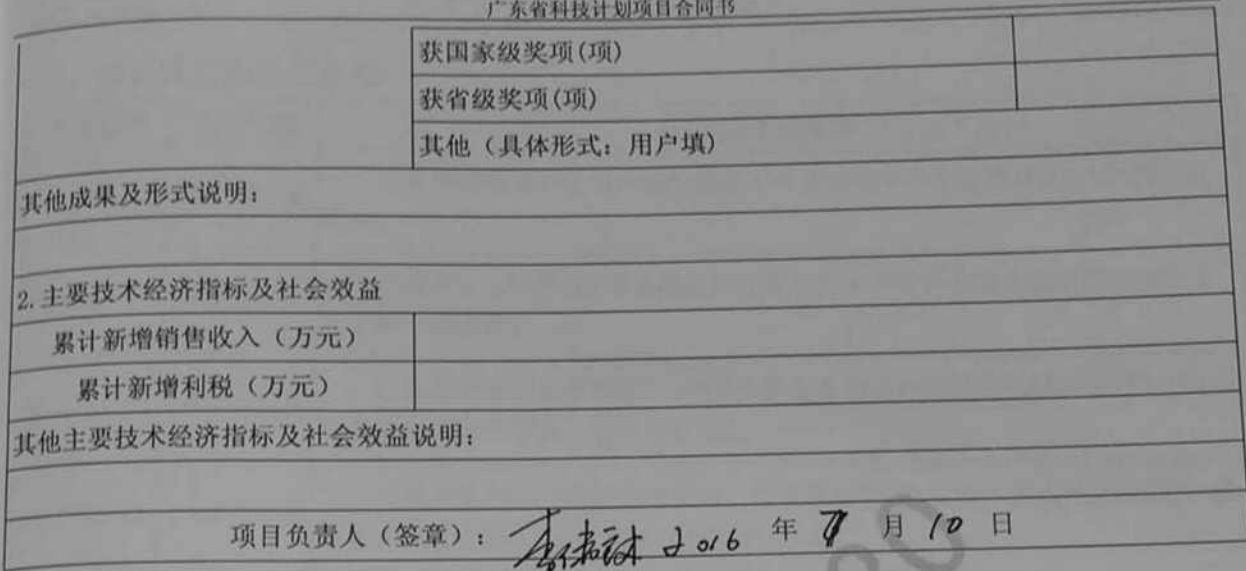 广东省科技计划项目合同书
获国家级奖项(项)
获省级奖项(项)
其他（具体形式：用户填)
其他成果及形式说明：
2.主要技术经济指标及社会效益
累计新增销售收入（万元）
累计新增利税（万元）
其他主要技术经济指标及社会效益说明：
项目负责人（签章）： 2016 年 7 月 10 日